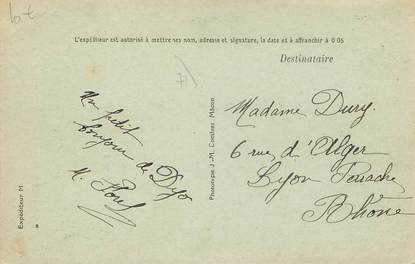 L'expéditeur est autorisé à mettre ses nom, adresse et signature, la date et à affranchir à 0 05
Destinataire
Un petit
bonjour de Dijo
M.
Phototypie J.-M. Combier Mâcon
Expéditeur M
Madame Dury.
6 rue d'Alger
Lyon Perrache
Rhône